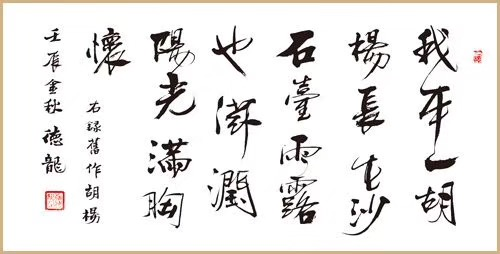 我本一胡
楊長在沙
石臺雨露
也滋潤
陽光滿胸
懷
右錄舊作胡楊
壬辰金秋德龍